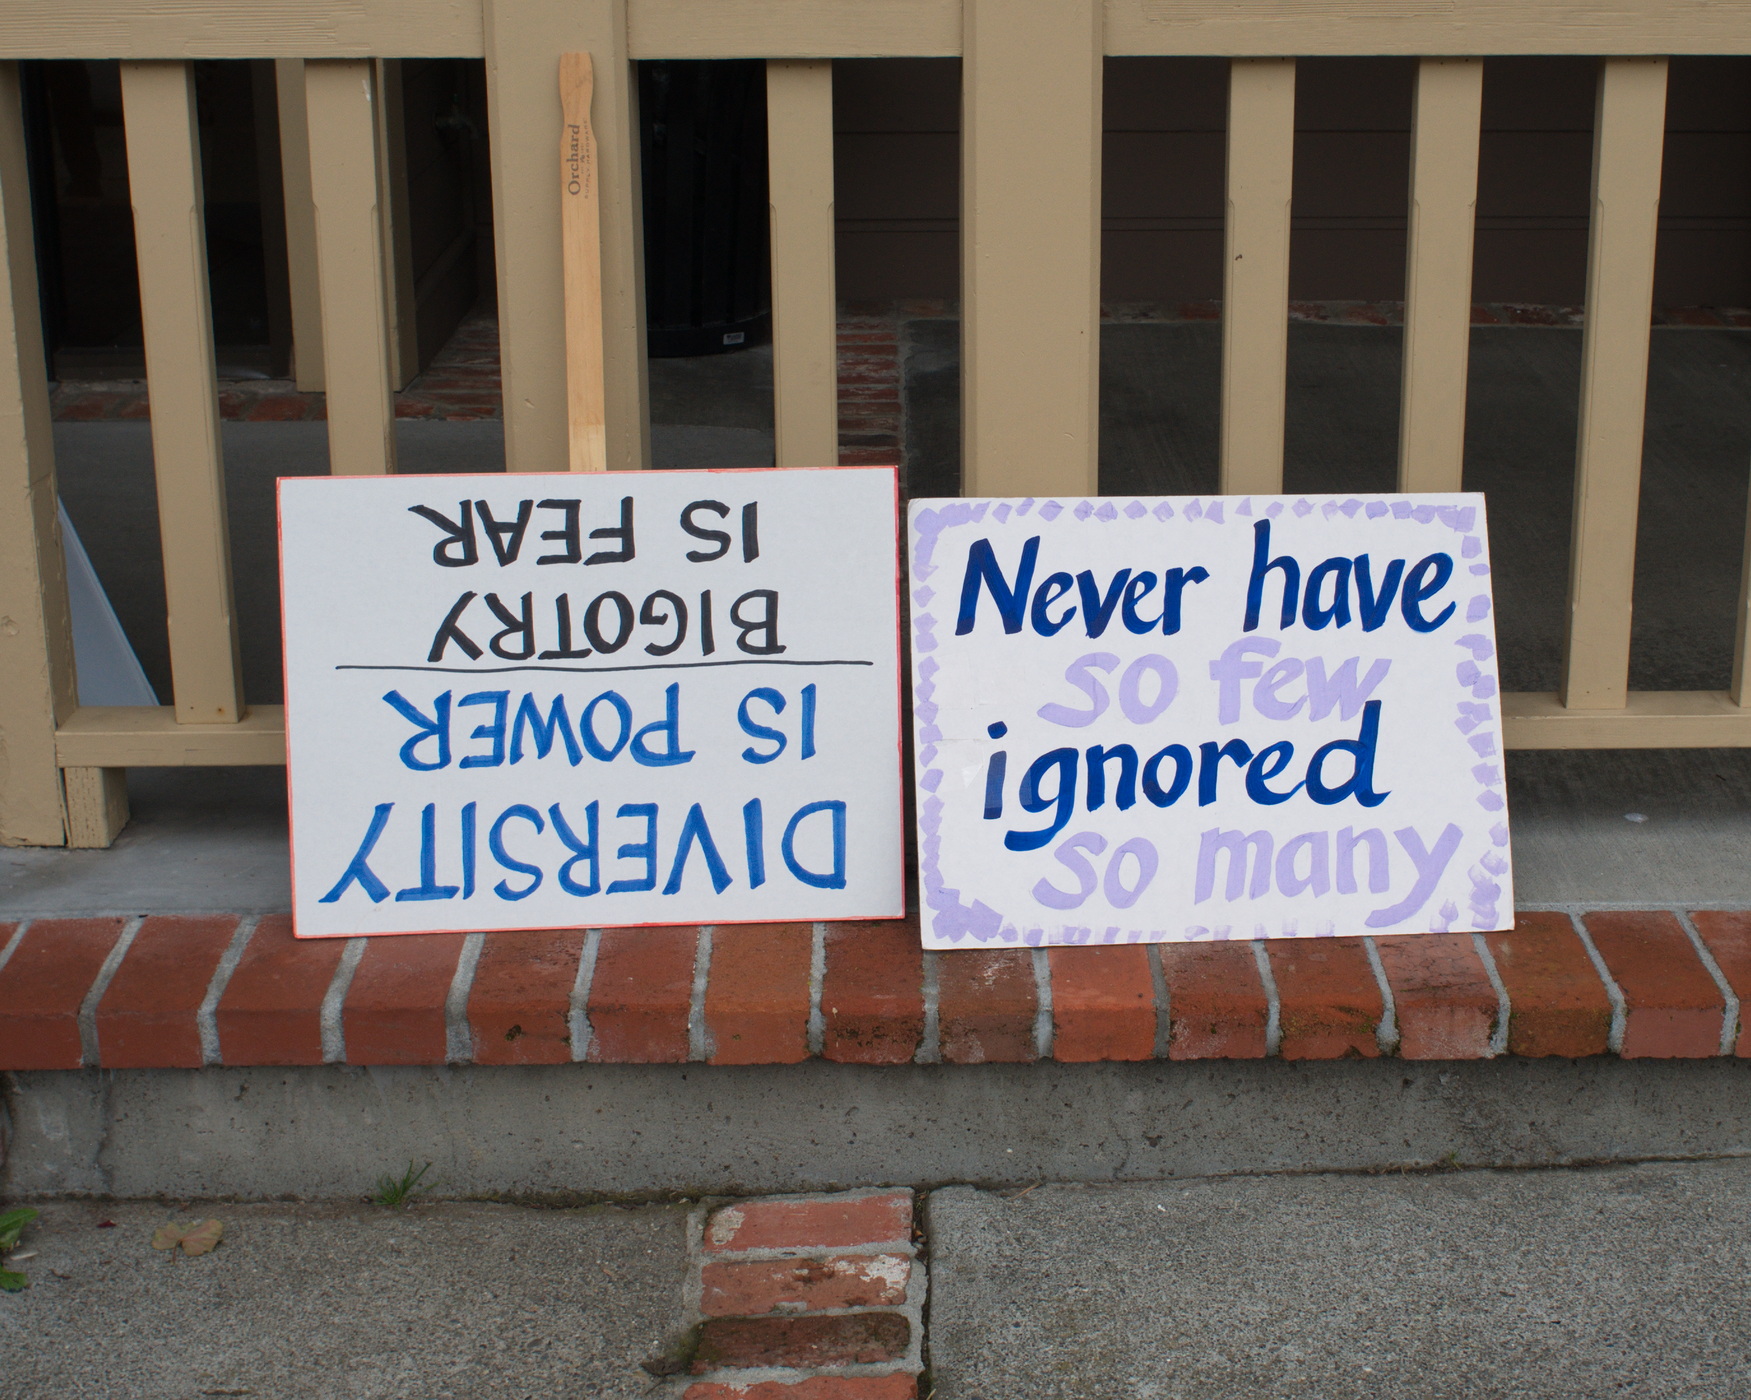 Orchard
DIVERSITY
IS POWER
BIGOTRY
IS FEAR
Never have
so few
ignored
so many